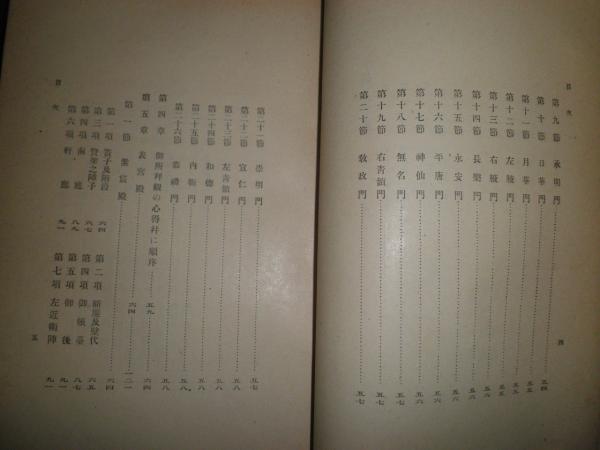 目次
第九節 承明門 五四
第十節 日華門 五五
第十一節 月華門 五五
第十二節 左腋門 五五
第十三節 右腋門 五五
第十四節 長樂門 五六
第十五節 永安門 五六
第十六節 平唐門 五六
第十七節 神仙門 五六
第十八節 無名門 五七
第十九節 右青鎖門 五七
第二十節 敎政門 五七
四
第二十一節 崇明門 五七
第二十二節 宣仁門 五八
第二十三節 左青鎖門 五八
第二十四節 和德門 五八
第二十五節 內衞門 五八
第二十六節 嘉禮門 五八
第四章 御所拜觀の心得并に順序 五九
第五章 表宮殿 六四
第一節 紫宸殿 六四
第一項 簀子及階段 六四
第二項 額間及壁代 六五
第三項 賢聖之障子 六七
第四項 御帳臺 八七
第四項 南庭 八九
第五項 御後 九一
第六項 軒廊 九一
第七項 左近衞陣 九一
目次
五